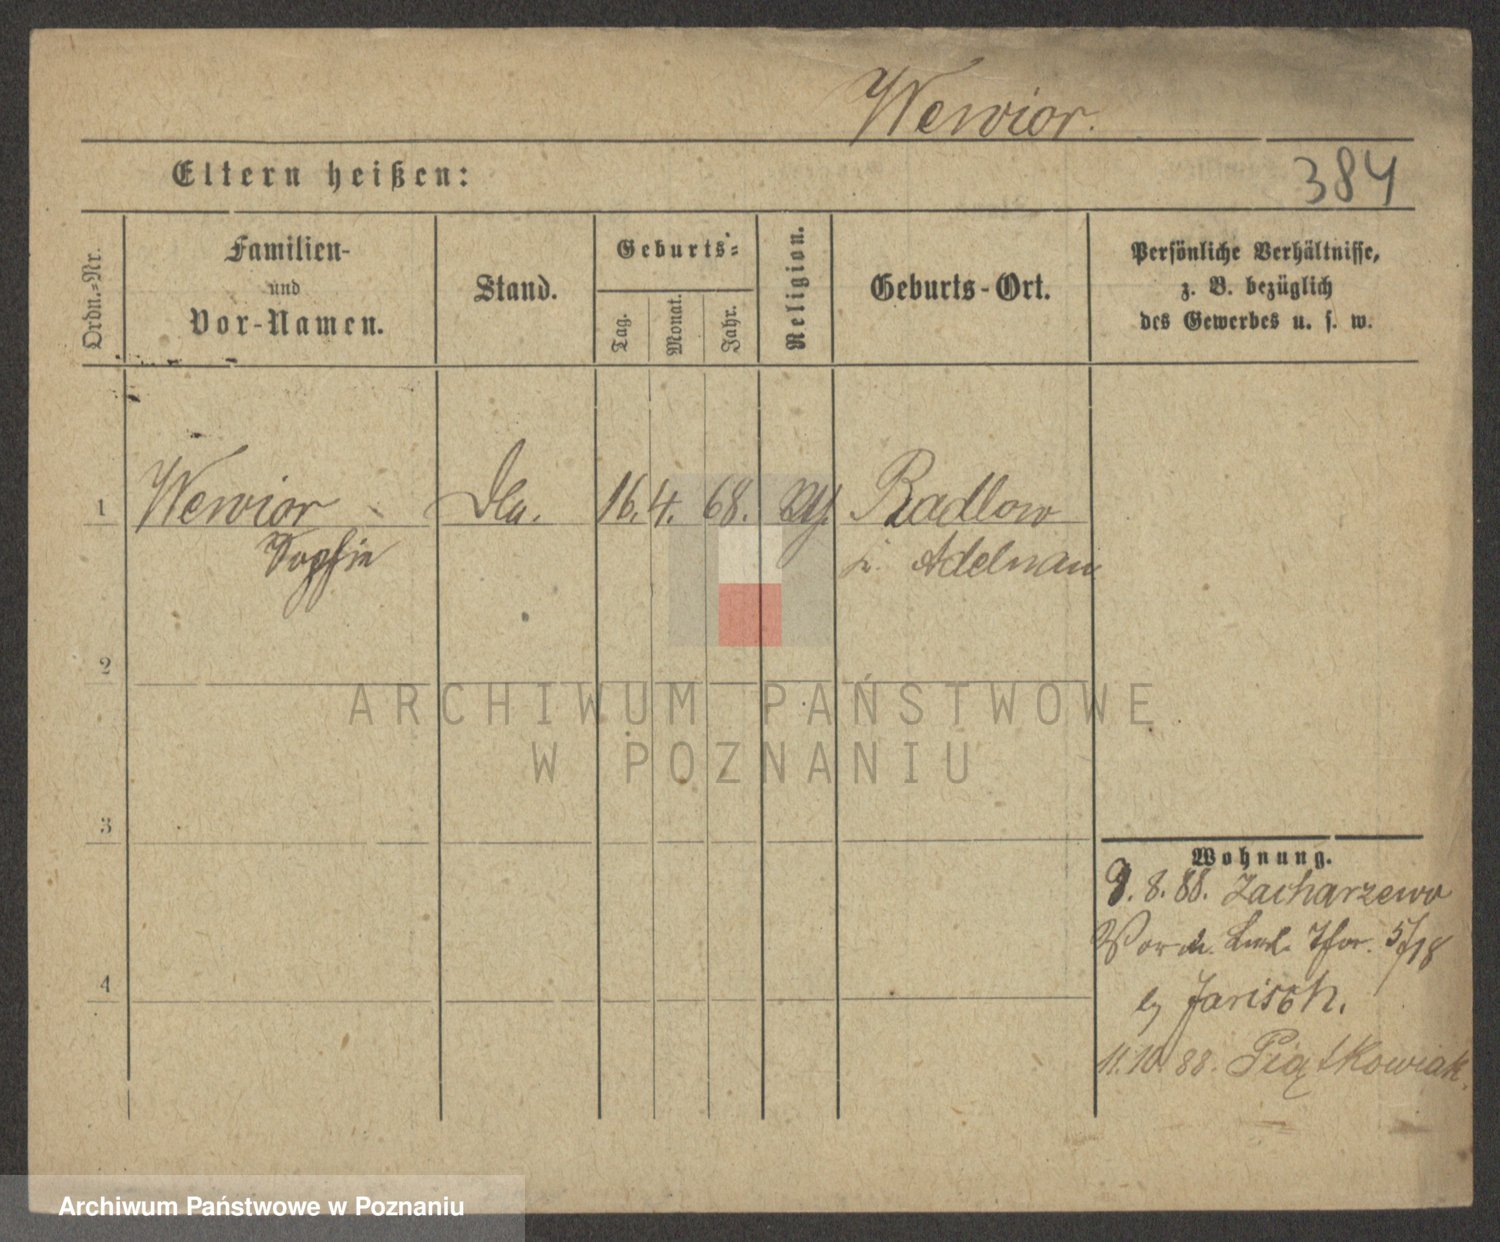 Wewior.
Eltern heißen:
384
Ordn.-Nr.
Familien-
und
Vor-Namen.
Stand.
Geburts-
Tag.
Monat.
Jahr.
Religion.
Geburts-Ort.
Persönliche Verhältnisse,
z. B. bezüglich
des Gewerbes u. s. w.
1 Wewior 16. 4. 68. Radlow
Sophie Adelnau
2
3
4
Wohnung.
8. 88. Zacharzewo
5/18
Jarisch.
11.10.88. Piątkowiak.
ARCHIWUM PAŃSTWOWE
W POZNANIU
Archiwum Państwowe w Poznaniu